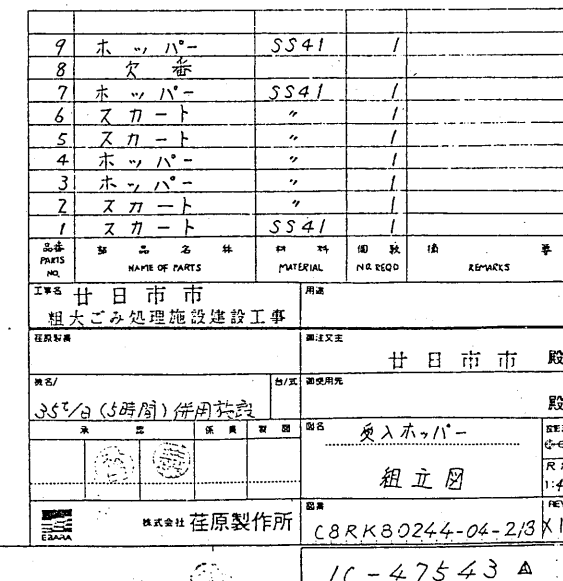 9 ホッパー SS41 1
8 欠番
7 ホッパー SS41 1
6 スカート 〃 1
5 スカート 〃 1
4 ホッパー 〃 1
3 ホッパー 〃 1
2 スカート 〃 1
1 スカート SS41 1
品番 部品名称 材料 個数 摘要
PARTS NO. NAME OF PARTS MATERIAL NO. REQD REMARKS
工事名 廿日市市 用途
粗大ごみ処理施設建設工事
荏原製番 御注文主
廿日市市 殿
機名/ 台/式 御使用先
35t/日(5時間)併用施設 殿
承認 係員 製図 図名 受入ホッパー
組立図
1:4
EBARA 株式会社 荏原製作所 図番 C8RK80244-04-213 X1
1C-47543